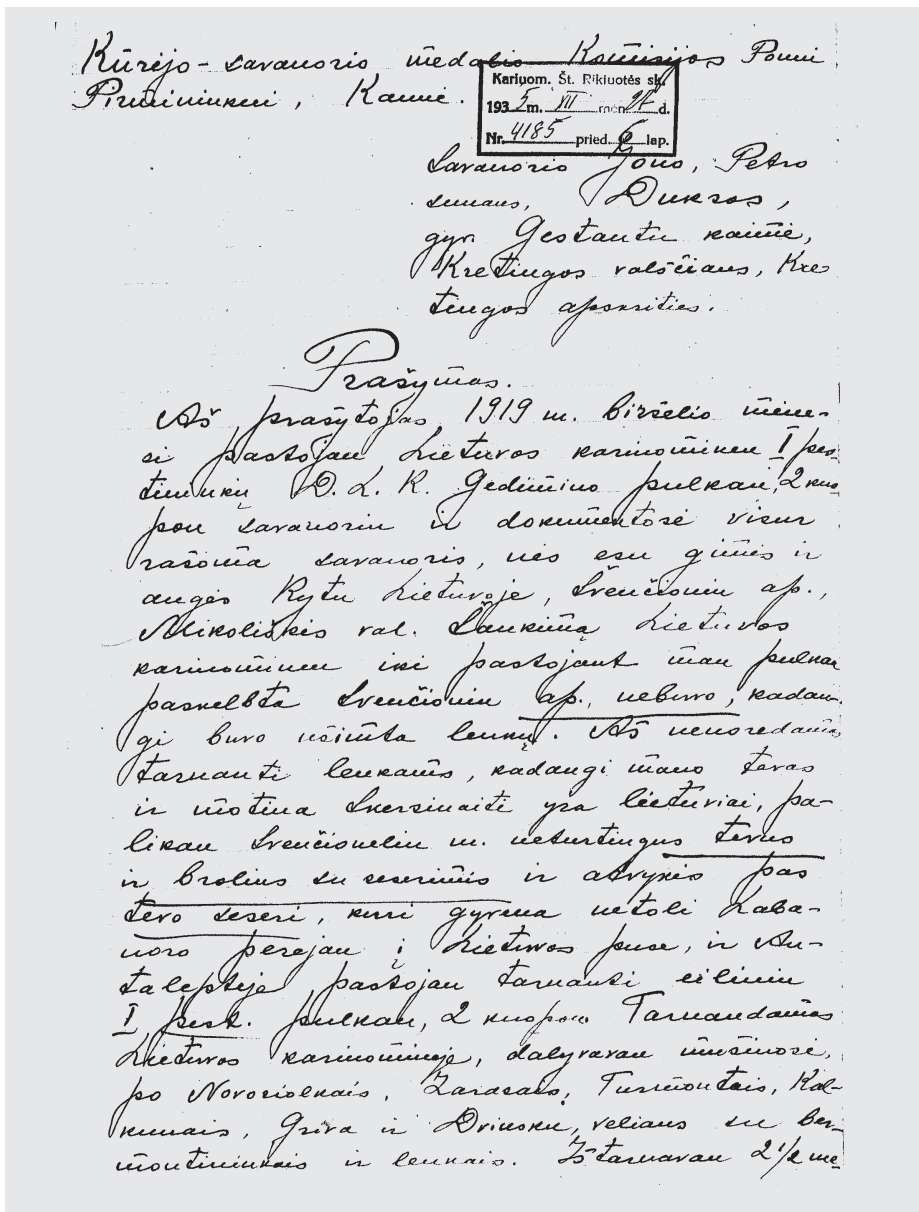 Kūrėjo-savanorio medalio Komisijos Ponui
Pirmininkui, Kaune.
Kariuom. Št. Rikiuotės sk.
1935 m. XII mėn. d.
Nr. 4185 pried. 6 lap.
Savanorio Jono, Petro
sunaus, Duksos,
gyv. Gestautu kaime,
Kretingos valsčiaus, Kre
tingos apskrities.
Prašymas.
Aš prašytojas 1919 m. birželio mene-
si pastojau Lietuvos kariuomenen I pes-
tininkų D. L. K. Gedimino pulkan, 2 kuo
pon savanoriu ir dokumentose visur
rašoma savanoris, nes esu gimęs ir
augęs Rytu Lietuvoje, Švenčioniu ap.,
Mikoliškis val. Šaukimą Lietuvos
kariuomenen iki pastojant man pulkan
paskelbta Švenčioniu ap., nebuvo, kadan-
gi buvo užimta lenkų. Aš nenoredamas
tarnauti lenkams, kadangi mano tevas
ir motina Skersinaitė yra lietuviai, pa-
likau Švenčioneliu m. neturtingus tevus
ir brolius su seserimis ir atvykęs pas
tevo seseri, kuri gyvena netoli Laba-
noro perejau į Lietuvos puse, ir An-
taleptėje pastojau tarnauti eiliniu
I pest. pulkan, 2 kuopon Tarnaudamas
Lietuvos kariuomenėje, dalyvavau mušiuose,
po Novosiolkais, Zarasais, Turmontais, Kal-
kunais, Griva ir Dvinsku, veliaus su ber-
montininkais ir lenkais. Ištarnavau 2 1/2 me-